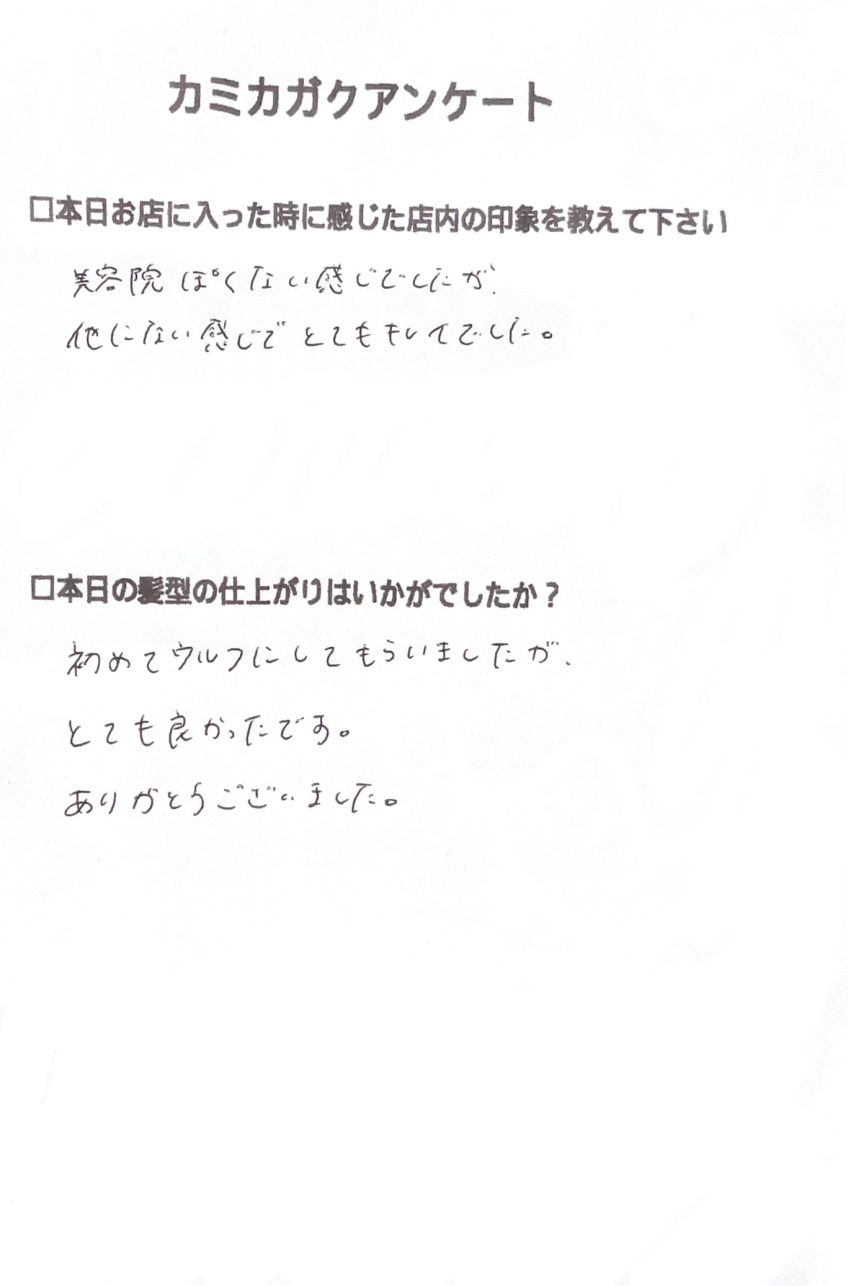 カミカガクアンケート
□本日お店に入った時に感じた店内の印象を教えて下さい
美容院ぽくない感じでしたが、
他にない感じでとてもキレイでした。
□本日の髪型の仕上がりはいかがでしたか？
初めてウルフにしてもらいましたが、
とても良かったです。
ありがとうございました。